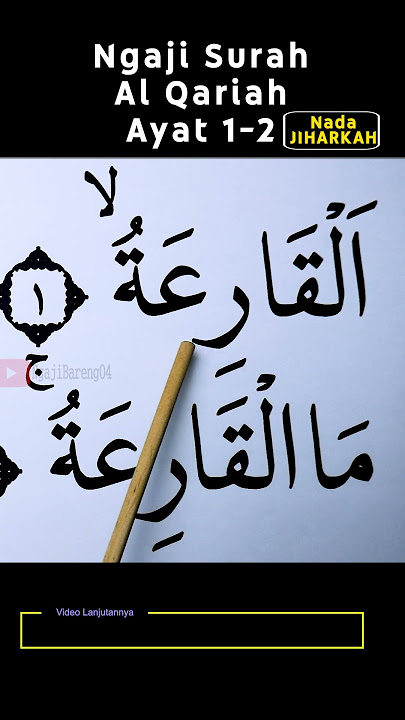 Ngaji Surah
Al Qariah
Ayat 1-2
Nada
JIHARKAH
اَلْقَارِعَةُ ۙ ١
ngajiBareng04
مَا الْقَارِعَةُ ۚ
Video Lanjutannya